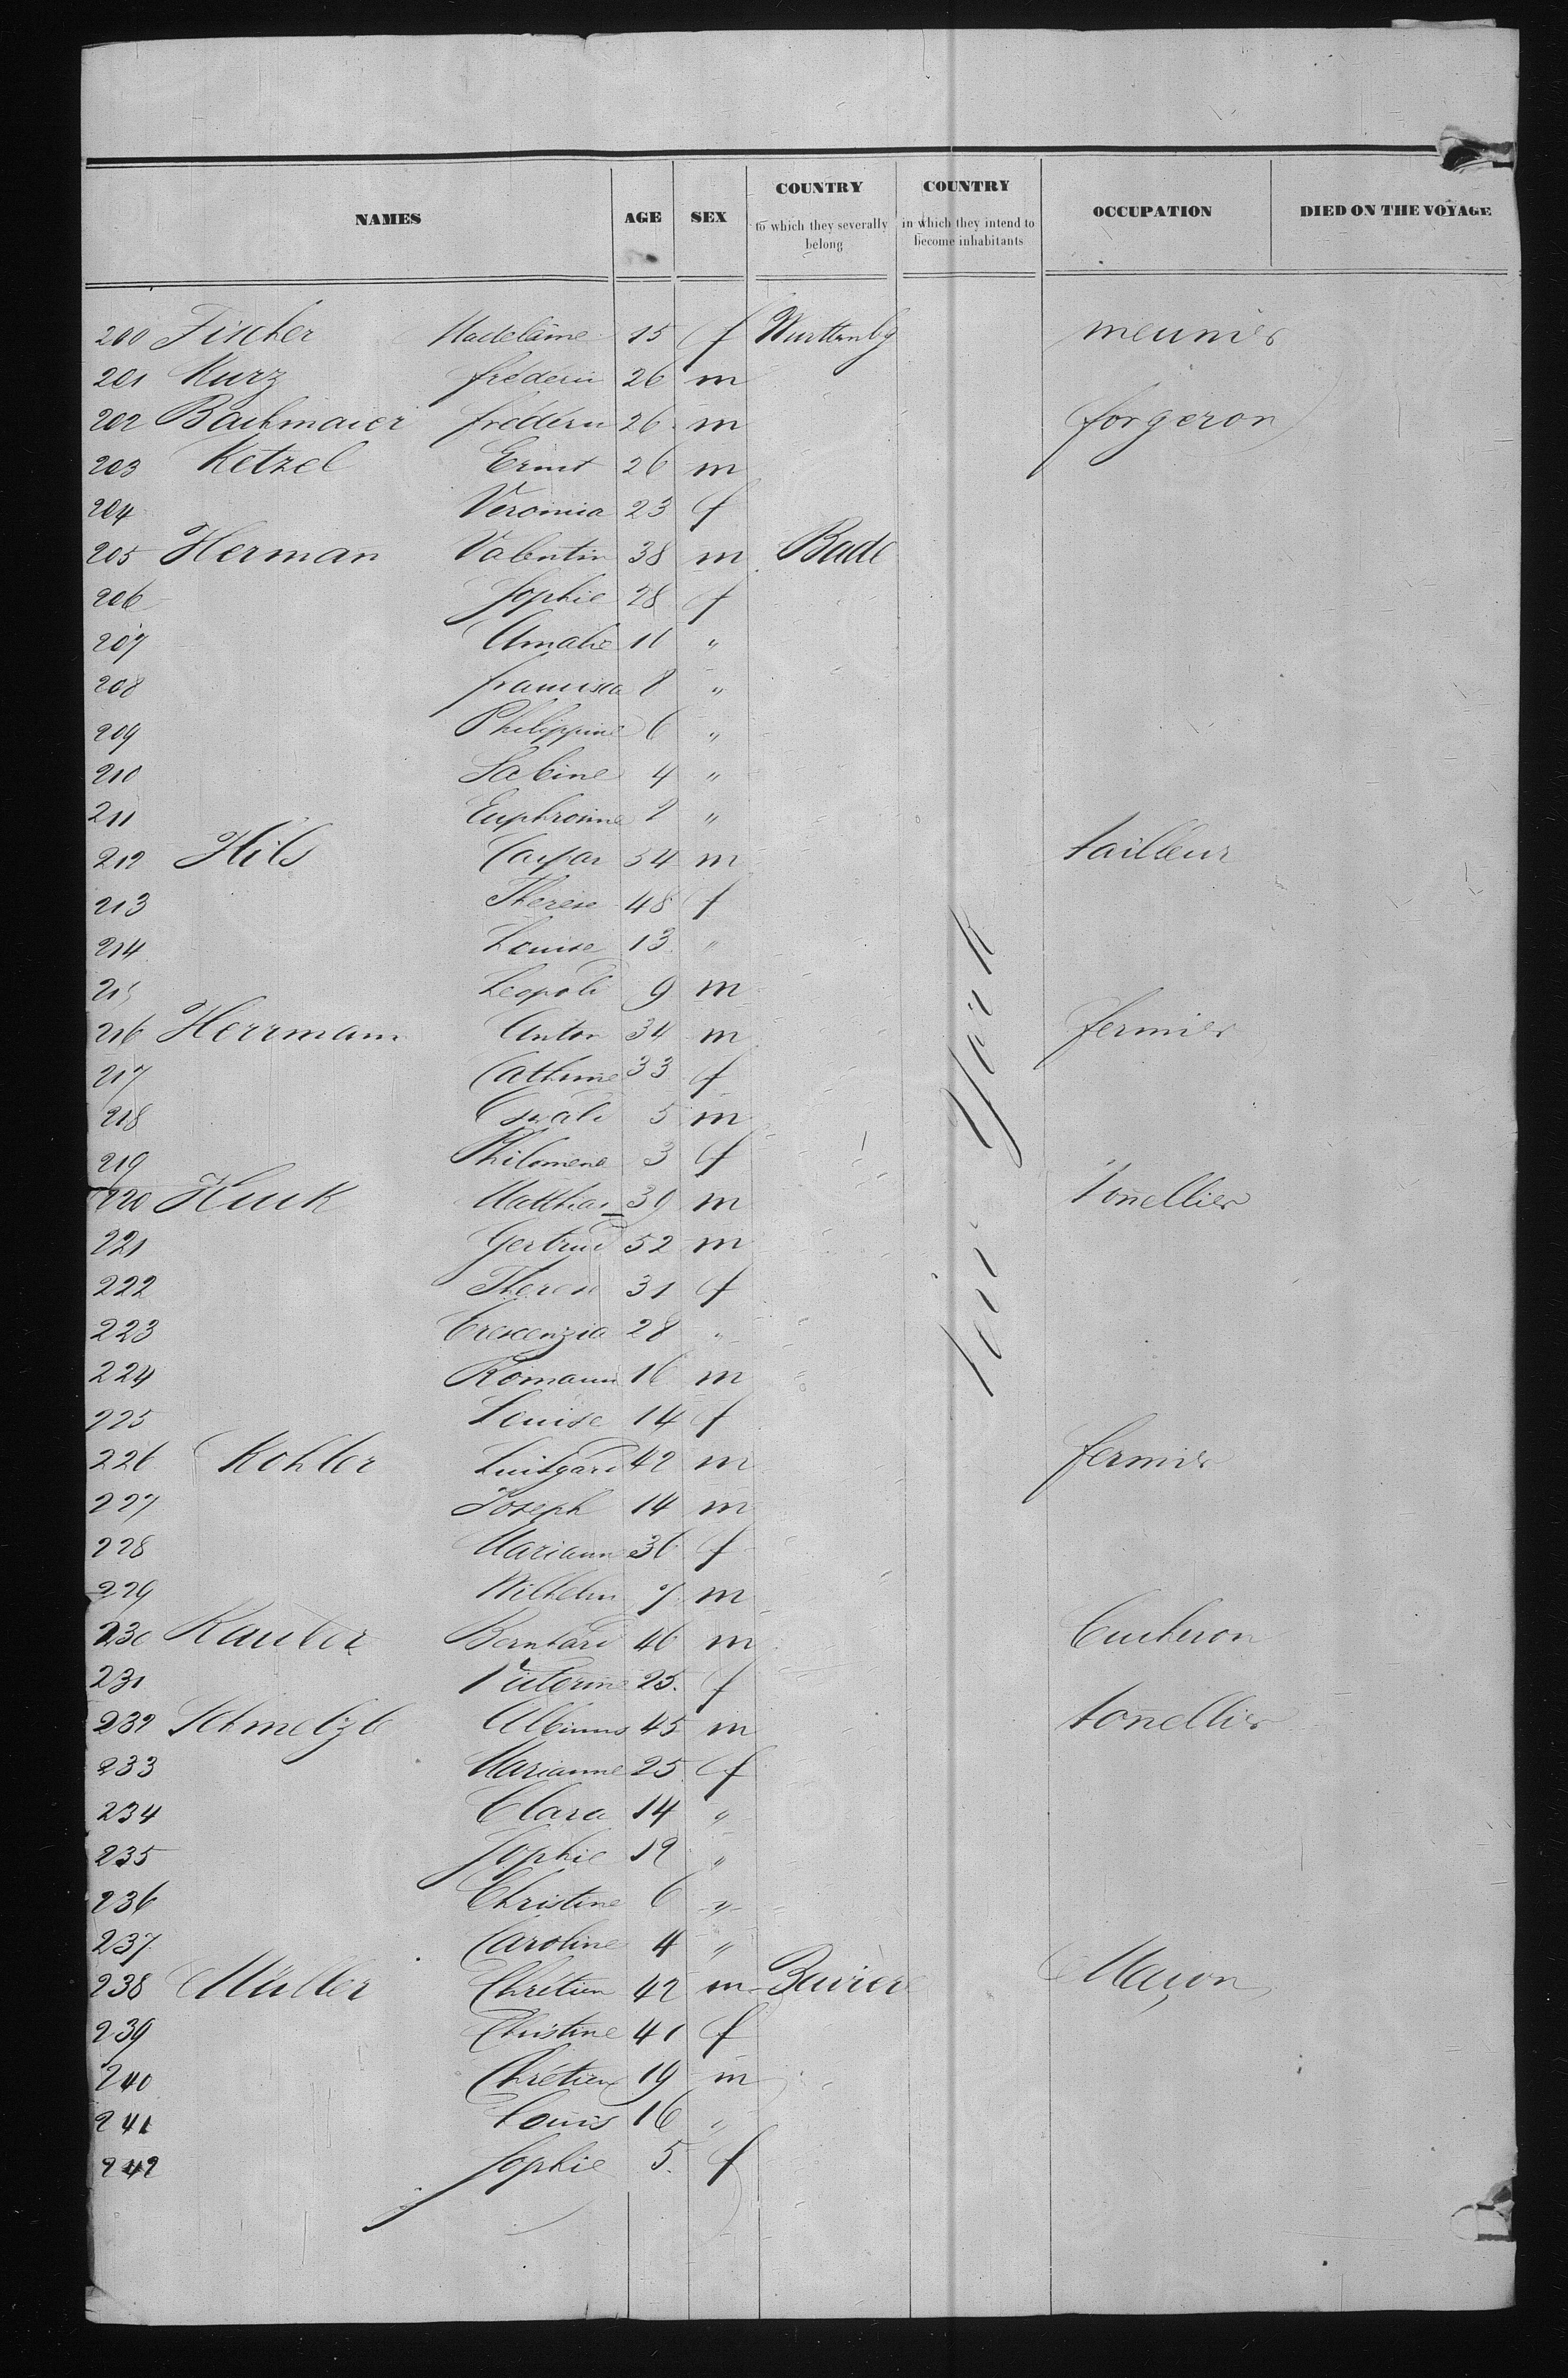 NAMES AGE SEX COUNTRY to which they severally belong COUNTRY in which they intend to become inhabitants OCCUPATION DIED ON THE VOYAGE
200 Fischer Madelaine 15 f Wurttemby meunier
201 Kurz frederic 26 m
202 Backmaier frederic 26 m forgeron
203 Ketzel Ernst 26 m
204 Veronica 23 f
205 Herman Valentin 38 m Bade
206 Sophie 28 f
207 Amalie 11 "
208 francisca 8 "
209 Philippine 6 "
210 Sabine 4 "
211 Euphrosine 2 "
212 Hils Caspar 54 m tailleur
213 Therese 48 f
214 Louise 13 "
215 Leopold 9 m
216 Herrmann Anton 34 m fermier
217 Catherine 33 f
218 Oswald 5 m
219 Philomene 3 f
220 Huck Matthias 39 m tonellier
221 Gertrud 52 m
222 Therese 31 f
223 Crescenzia 28 "
224 Romann 16 m
225 Louise 14 f
226 Kohler Luitgard 42 m fermier
227 Joseph 14 m
228 Mariann 36 f
229 Wilhelm 7 m
230 Bernhard 46 m
231 Victorine 25 f
232 Albinus 45 m tonellier
233 Marianne 25 f
234 Clara 14 "
235 Sophie 12 "
236 Christine 6 "
237 Caroline 4 "
238 Müller Chretien 42 m Baviere Maçon
239 Christine 41 f
240 Chrétien 19 m
241 Louis 16 "
242 Sophie 5 f
York